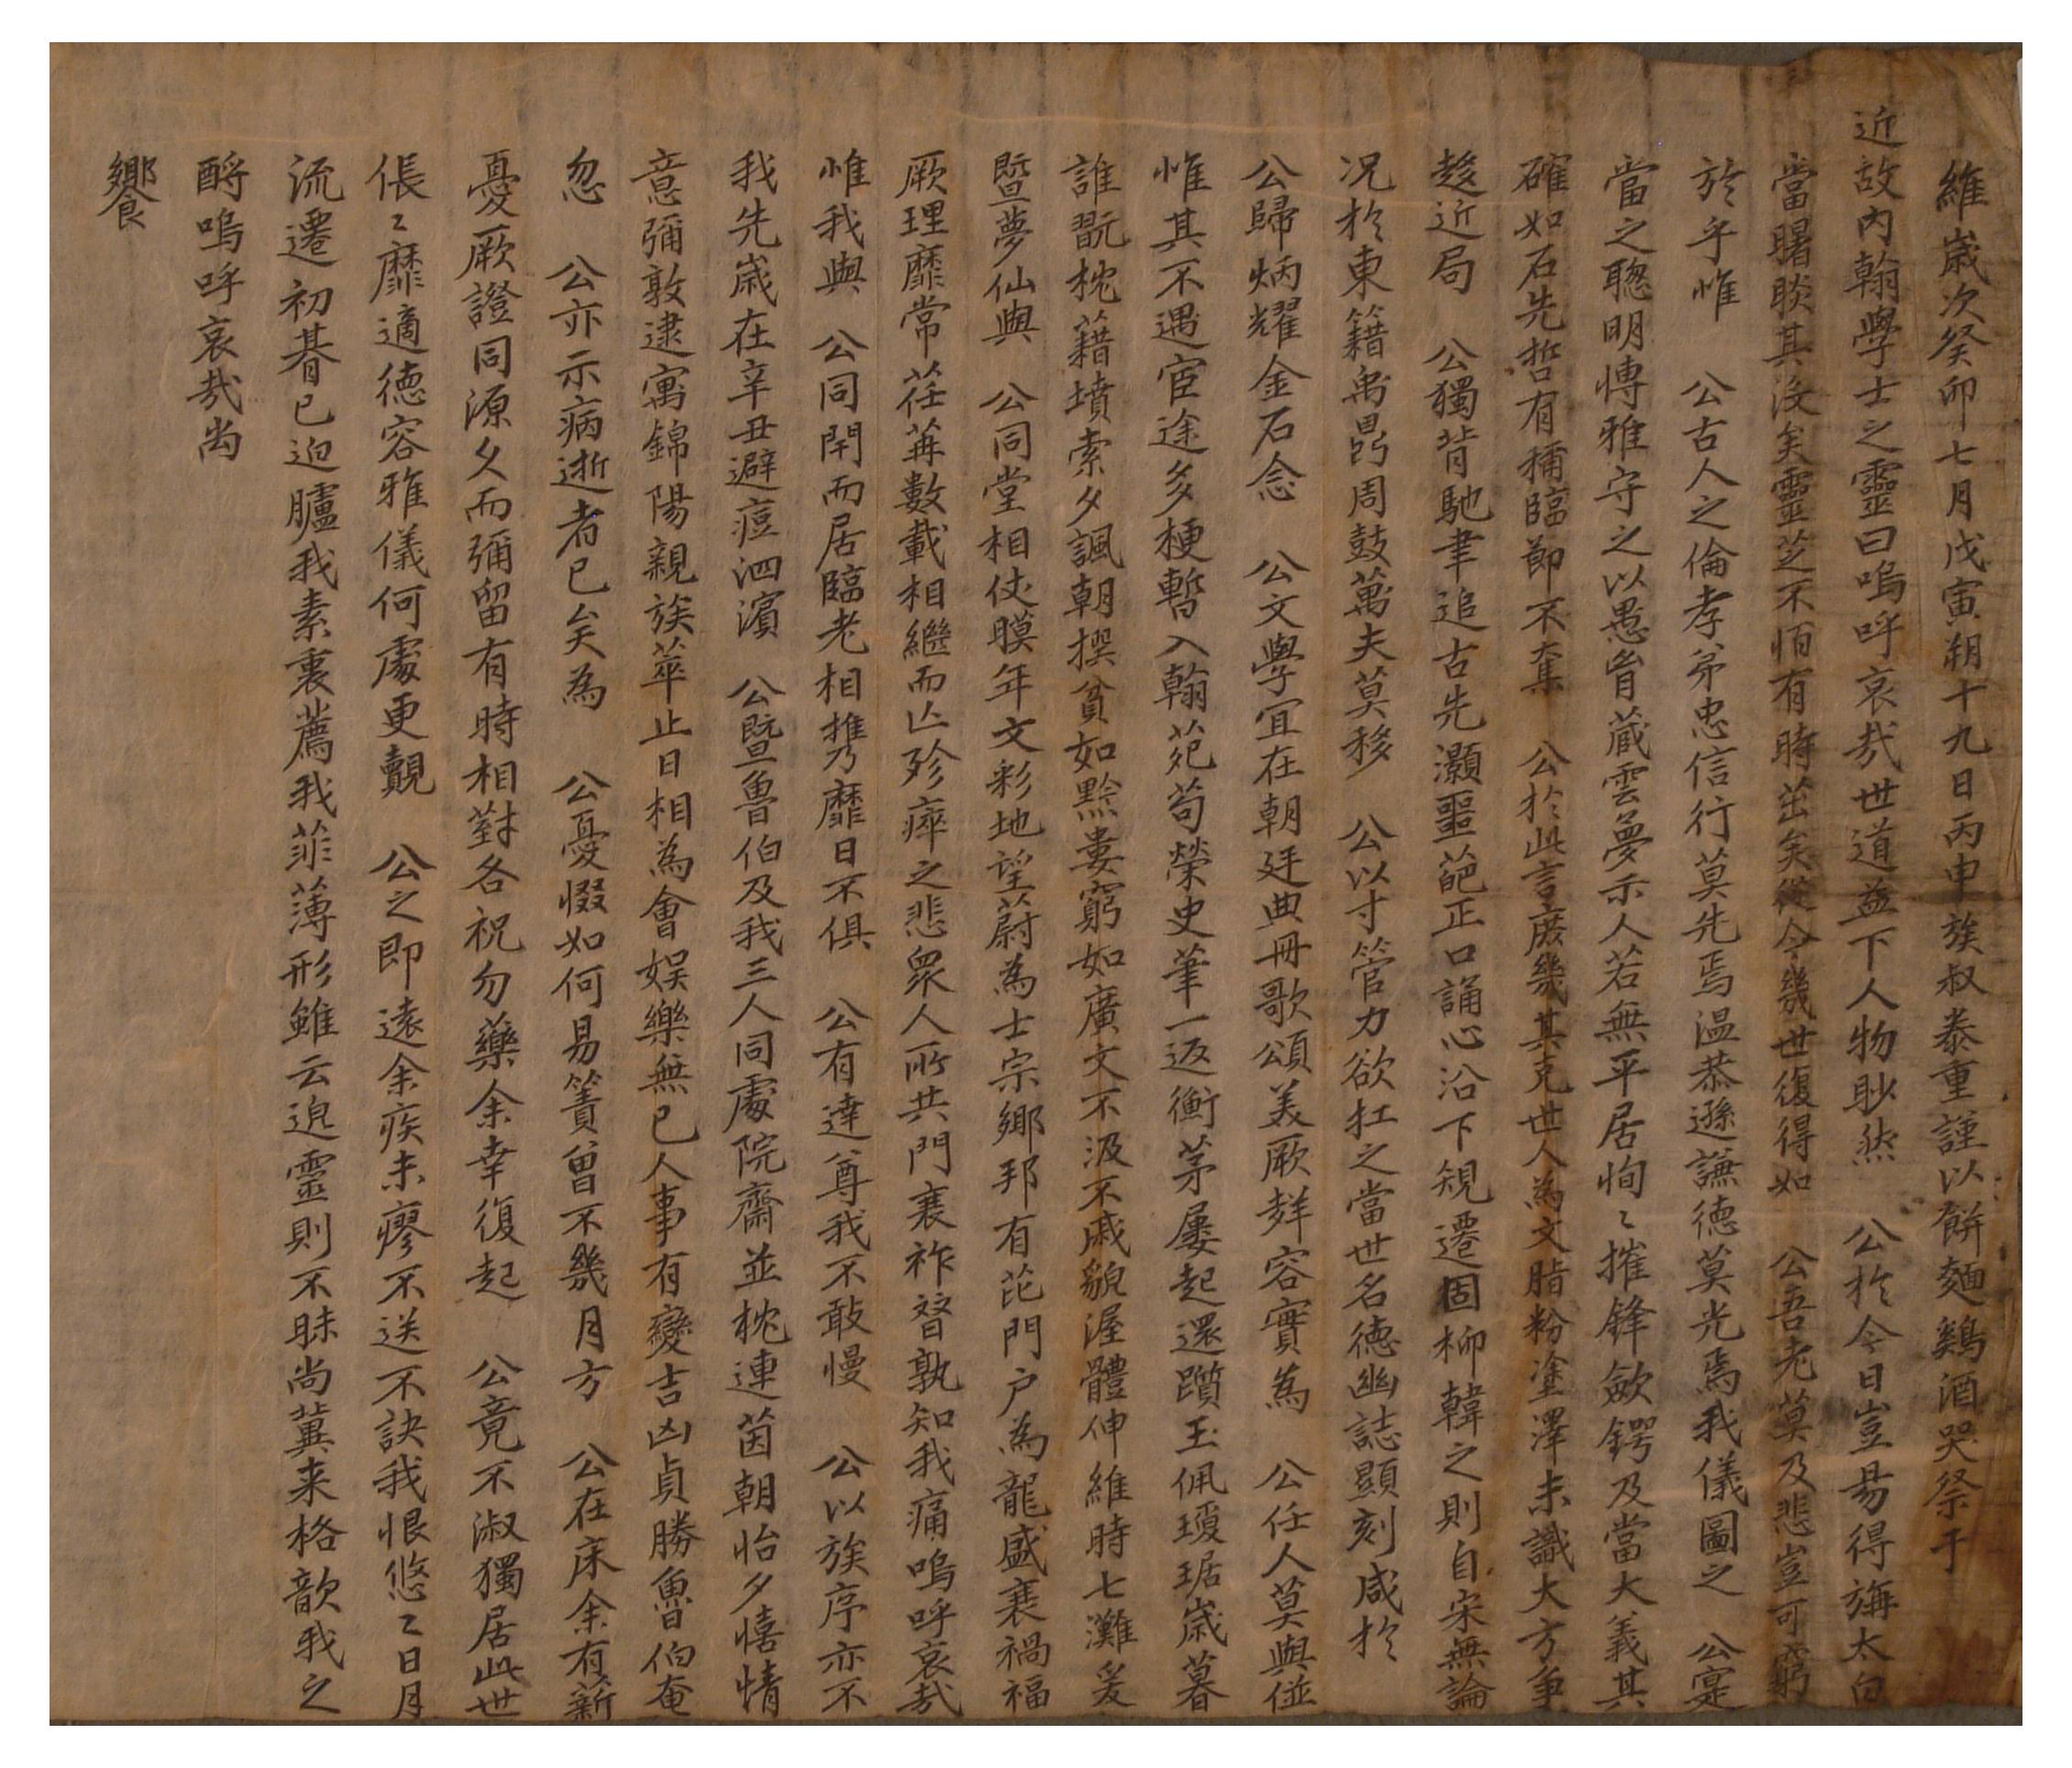 維歲次癸卯七月戊寅朔十九日丙申族叔泰重謹以餠麵鷄酒哭祭于
近故內翰學士之靈曰嗚呼哀哉世道益下人物眇然 公於今日豈易得旃太白
當曙睒其沒矣靈芝不恒有時茁矣從今幾世復得如 公吾老莫及悲豈可窮
於乎惟 公古人之倫孝弟忠信行莫先焉溫恭遜謙德莫光焉我儀圖之 公寔
當之聰明博雅守之以愚胷藏雲夢示人若無平居恂〻摧鋒斂鍔及當大義其
確如石先哲有稱臨節不奪 公於此言庶幾其克世人為文脂粉塗澤未識大方爭
趍近局 公獨背馳聿追古先灝噩葩正口誦心沿下規遷固柳韓之則自宋無論
况於東籍禹鼎周鼓萬夫莫移 公以寸管力欲扛之當世名德幽誌顯刻咸於
公歸炳耀金石念 公文學宜在朝廷典冊歌頌美厥形容實為 公任人莫與並
惟其不遇宦途多梗暫入翰苑苟榮史筆一返衡茅屢起還躓玉佩瓊琚歲暮
誰翫枕籍墳索夕諷朝撰貧如黔婁窮如廣文不汲不戚貌渥體伸維時七灘爰
曁夢仙與 公同堂相伎暯年文彩地望蔚為士宗鄉邦有范門戶為龍盛衰禍福
厥理靡常荏苒數載相繼而亡殄瘁之悲衆人所共門衰祚替孰知我痛嗚呼哀哉
惟我與 公同閈而居臨老相携靡日不俱 公有達尊我不敢慢 公以族序亦不
我先歲在辛丑避痘泗濱 公曁魯伯及我三人同處院齋並枕連茵朝怡夕憘情
意彌敦逮寓錦陽親族萃止日相為會娛樂無已人事有變吉凶貞勝魯伯奄
忽 公亦示病逝者已矣為 公憂惙如何易簀曾不幾月方 公在床余有薪
憂厥證同源久而彌留有時相對各祝勿藥余幸復起 公竟不淑獨居此世
倀〻靡適德容雅儀何處更覿 公之即遠余疾未瘳不送不訣我恨悠〻日月
流遷初朞已迫臚我素裏薦我菲薄形雖云逈靈則不昧尚冀來格歆我之
酹嗚呼哀哉尚
饗